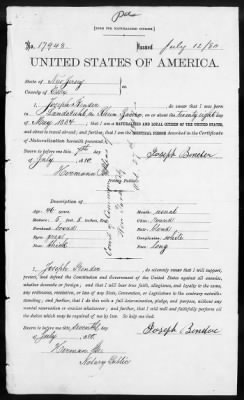 [FORM FOR NATURALIZED CITIZEN.]
No. 17943. Issued July 12/80
UNITED STATES OF AMERICA.
State of New Jersey
County of Essex
I, Joseph Bender, do swear that I was born
in Landstuhl on Rhein on or about the twenty eight day
of May 1834; that I am a NATURALIZED AND LOYAL CITIZEN OF THE UNITED STATES,
and about to travel abroad; and further, that I am the IDENTICAL PERSON described in the Certificate
of Naturalization herewith presented.
Sworn to before me this 7th day
of July, 1880
Joseph Bender
Hermann
Notary Public.
DESCRIPTION OF
Age: 46 years.
Stature: 5 feet, 8 inches, Eng.
Forehead:
Eyes: grey
Nose: thick
Mouth: usual
Chin: round
Hair:
Complexion: white
Face: long
I, Joseph Bender, do solemnly swear that I will support,
protect, and defend the Constitution and Government of the United States against all enemies,
whether domestic or foreign; and that I will bear true faith, allegiance, and loyalty to the same,
any ordinance, resolution, or law of any State, Convention, or Legislature to the contrary notwith-
standing; and further, that I do this with a full determination, pledge, and purpose, without any
mental reservation or evasion whatsoever; and further, that I will well and faithfully perform all
the duties which may be required of me by law: So help me God.
Sworn to before me this seventh day
of July, 1880.
Joseph Bender
Herman
Notary Public